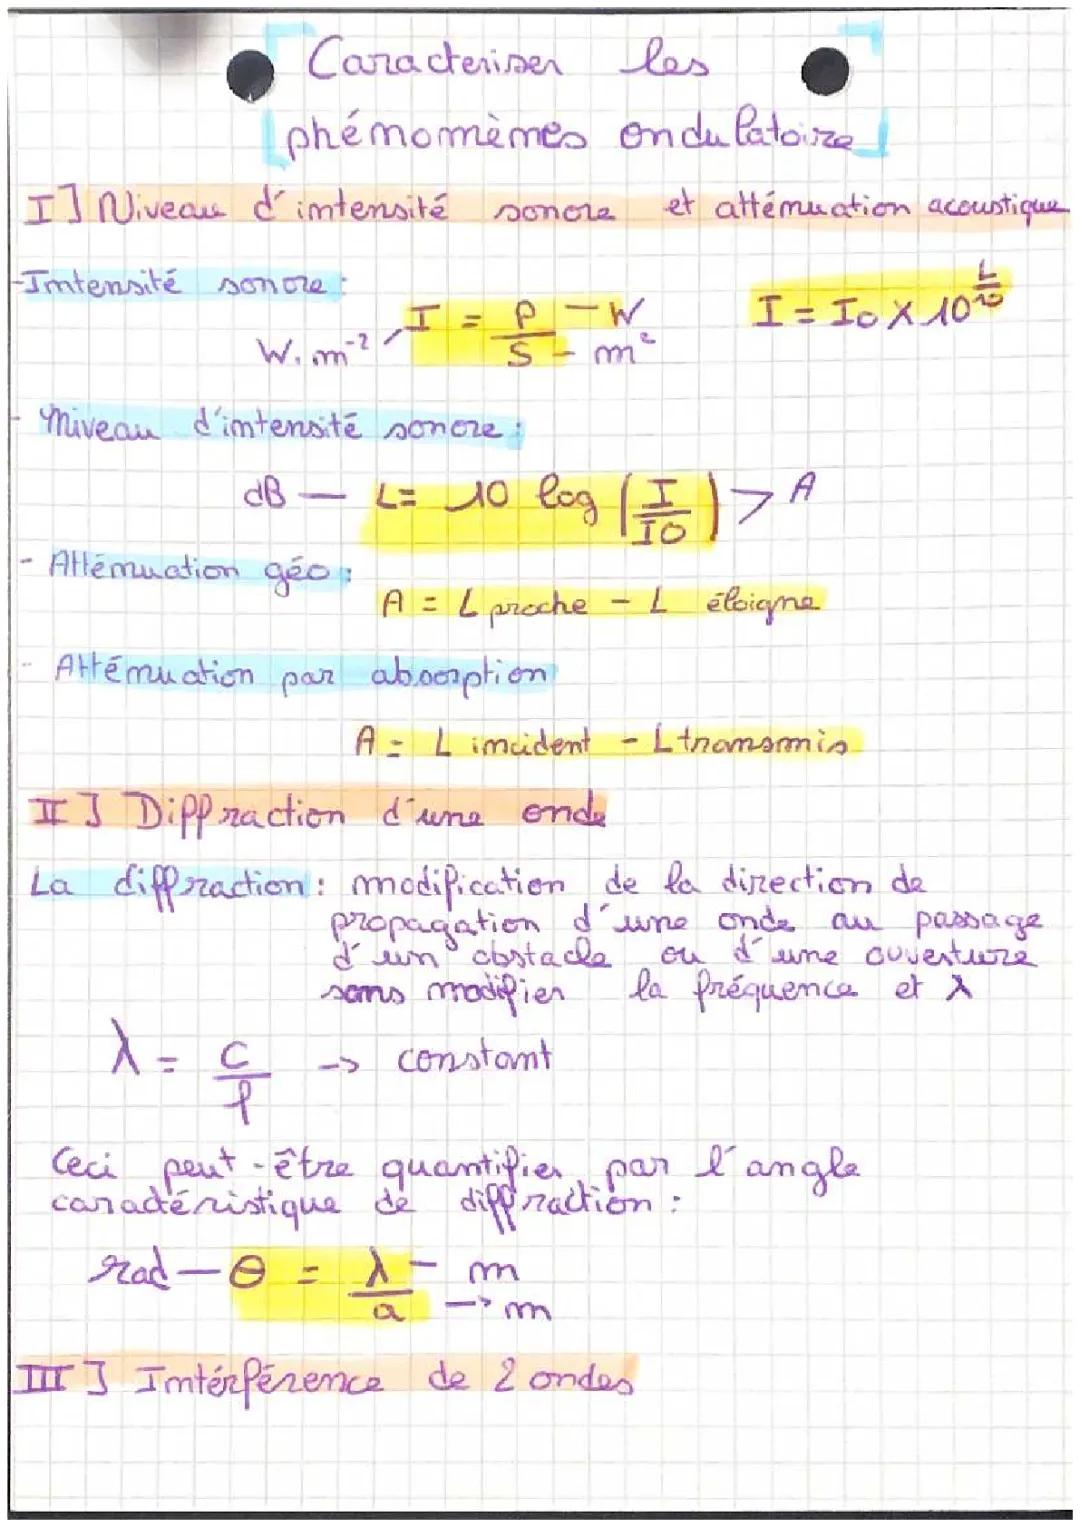 Caracteriser les
phénomèmes ondulatoire
I] Niveau d'intensité sonore et atténuation acoustique
-Intensité sonore :
W.m⁻² I = P/S - W - m² I = I0 x 10^(L/10)
- Niveau d'intensité sonore :
dB — L= 10 log (I/I0) > A
- Atténuation géo :
A = L proche - L éloigne
- Atténuation par absorption
A = L incident - L transmis
II] Diffraction d'une onde
La diffraction : modification de la direction de
propagation d'une onde au passage
d'un obstacle ou d'une ouverture
sans modifier la fréquence et λ
λ = c/f -> constant
Ceci peut-être quantifier par l'angle
caractéristique de diffraction :
rad — θ = λ/a - m -> m
III] Intérférence de 2 ondes